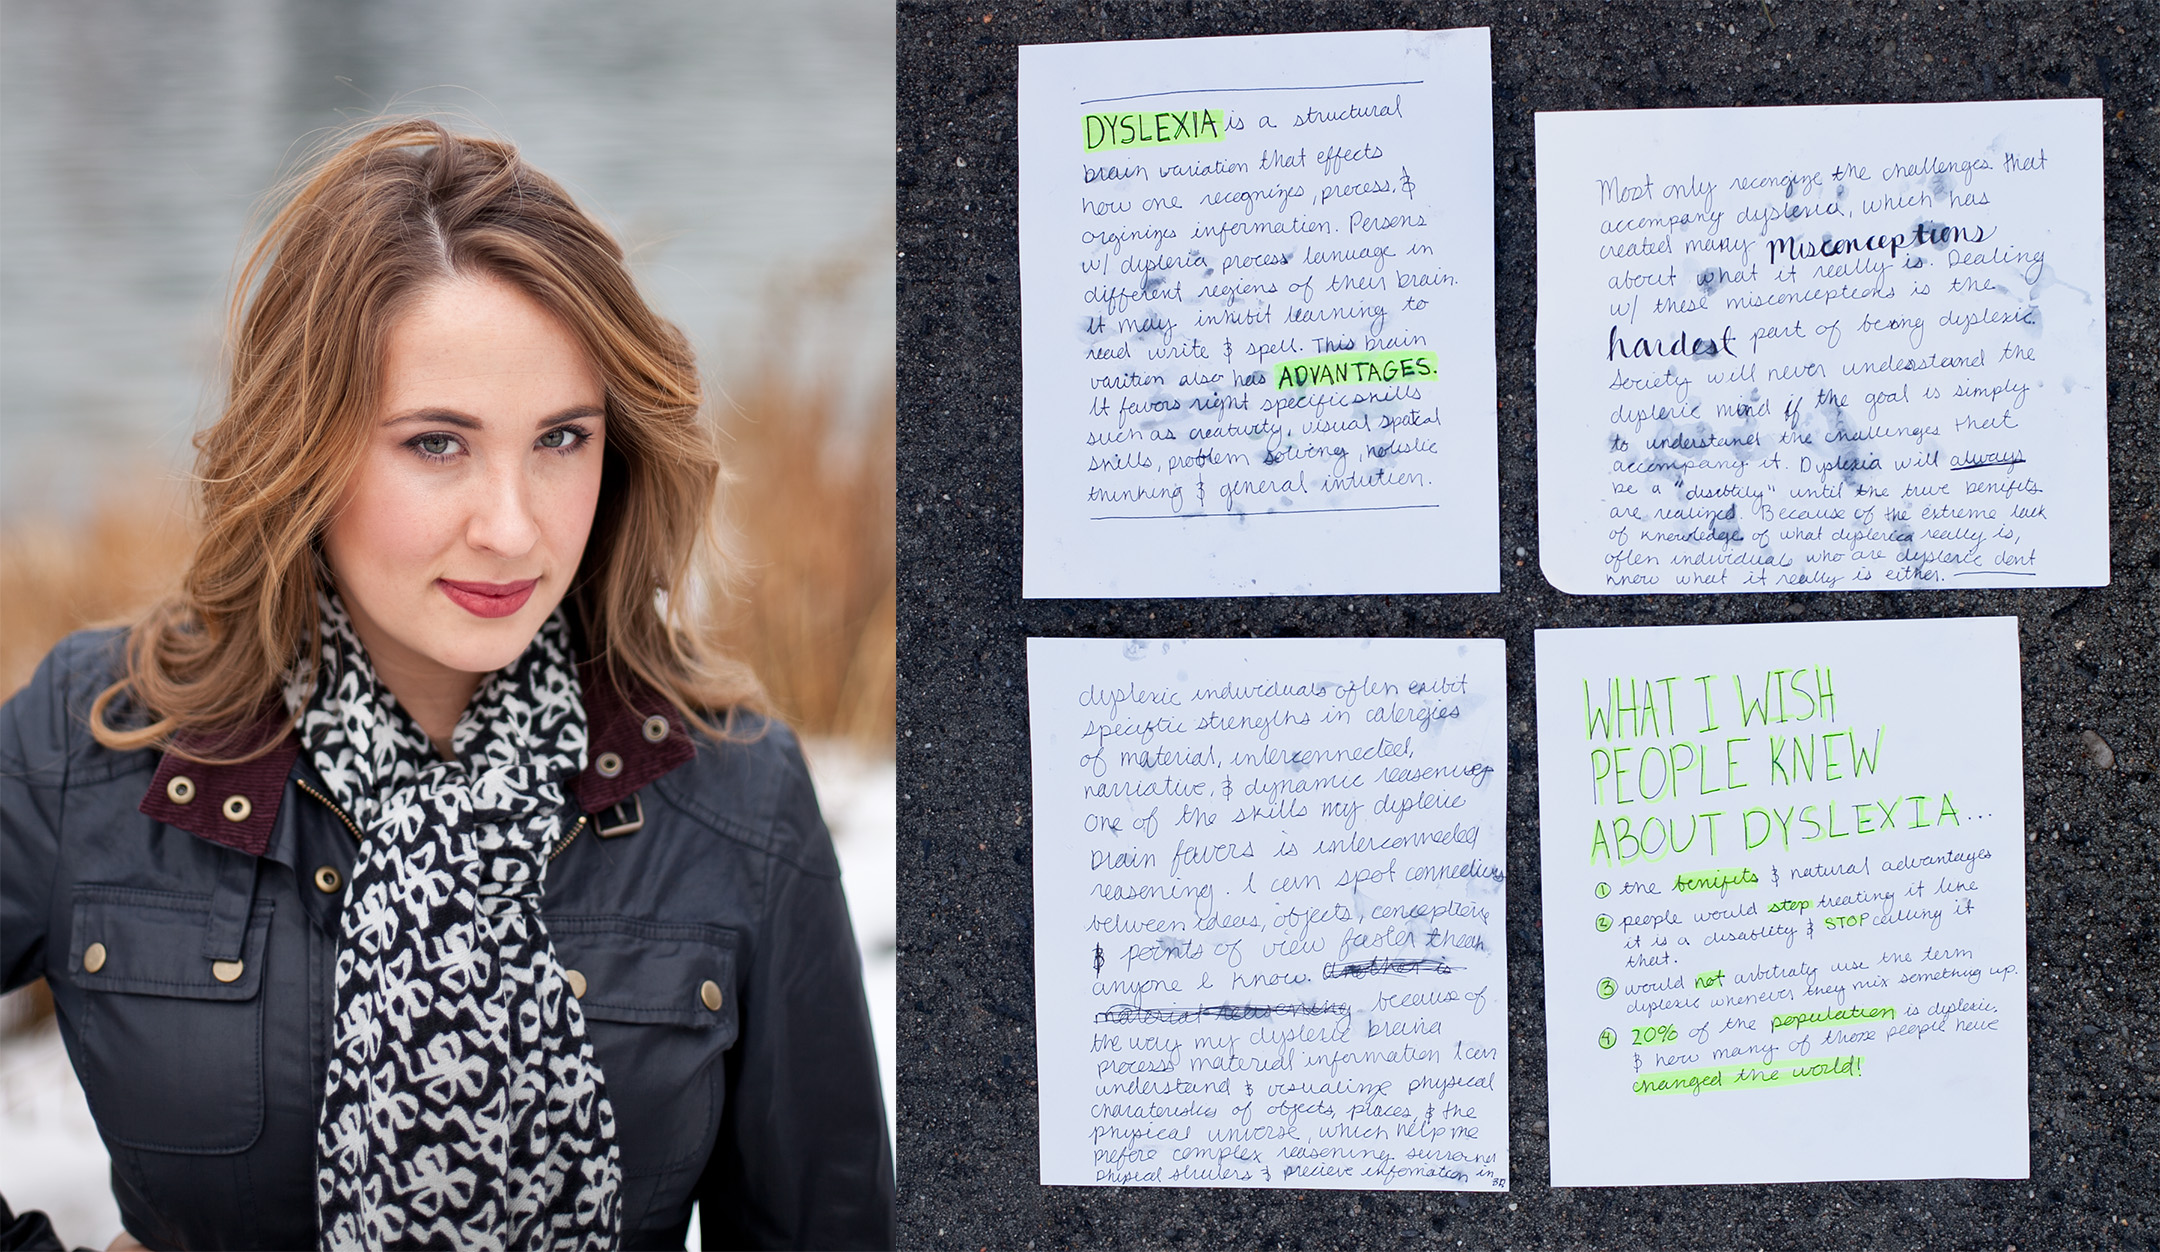 DYSLEXIA is a structural
brain variation that effects
how one recognizes, process, &
orginizes information. Persons
w/ dyslexia process lanuage in
different regions of their brain.
It may inhibit learning to
read write & spell. This brain
varition also has ADVANTAGES.
It favors right specific skills
such as creativity, visual spatial
skills, problem solving, holistic
thinking & general intution.
Most only recongize the challenges that
accompany dyslexia, which has
created many misconceptions
about what it really is. Dealing
w/ these misconceptions is the
hardest part of being dyslexic.
Society will never understand the
dyslexic mind if the goal is simply
to understand the challenges that
accompany it. Dyslexia will always
be a "disability" until the true benifits
are realized. Because of the extreme lack
of knowledge of what dyslexia really is,
often individuals who are dyslexic dont
know what it really is either.
dyslexic individuals often exibit
specific strengths in catergies
of material, interconnected,
narriative, & dynamic reasening
One of the skills my dyslexic
brain favors is interconnected
reasening. I can spot connections
between ideas, objects, conceptions
& points of view faster than
anyone I know. Another is
material reasoning because of
the way my dyslexic brain
process material information I can
understand & visualize physical
charateristics of objects, places, & the
physical universe, which help me
prefore complex reasening
physical & precieve infomation in
WHAT I WISH
PEOPLE KNEW
ABOUT DYSLEXIA...
① the benifits & natural advantages
② people would stop treating it like
it is a disablity & STOP calling it
that.
③ would not arbitraty use the term
dyslexic whenever they mix something up.
④ 20% of the population is dyslexic.
& how many of those people have
changed the world!